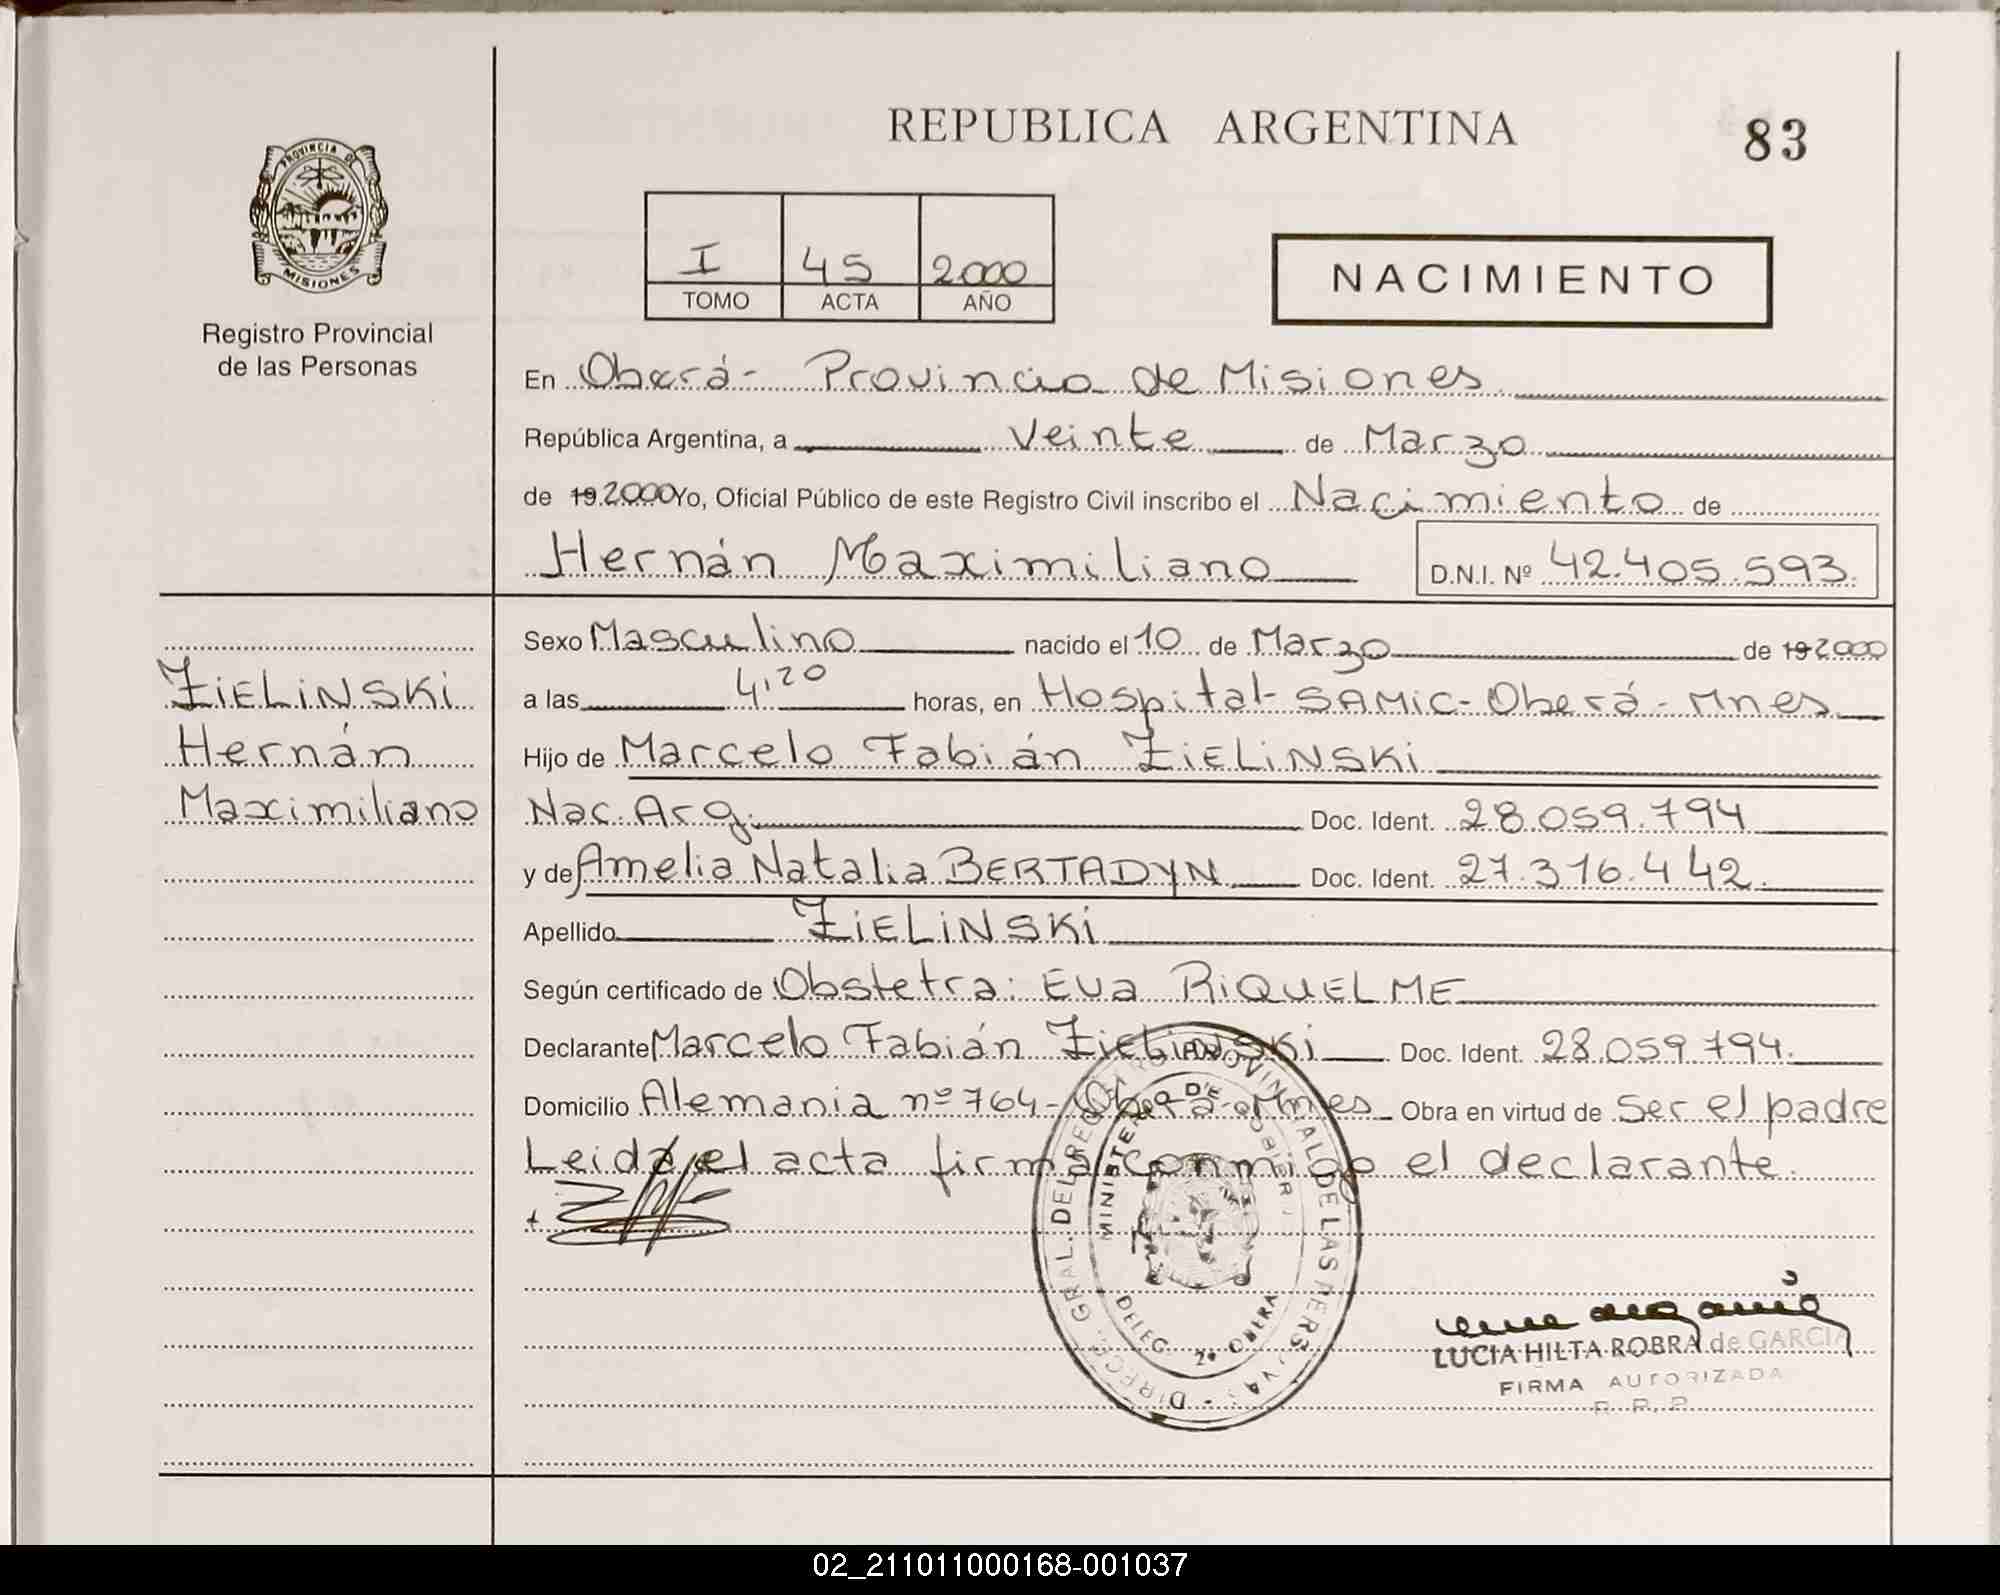 REPUBLICA ARGENTINA
83
PROVINCIA DE
MISIONES
Registro Provincial
de las Personas
I 45 2000
TOMO ACTA AÑO
NACIMIENTO
En Oberá - Provincia de Misiones
República Argentina, a Veinte de Marzo
de 19 2000 Yo, Oficial Público de este Registro Civil inscribo el Nacimiento de
Hernán Maximiliano D.N.I. Nº 42.405.593.
ZIELINSKI
Hernán
Maximiliano
Sexo Masculino nacido el 10 de Marzo de 19 2000
a las 4,20 horas, en Hospital - SAMIC - Oberá - Mnes
Hijo de Marcelo Fabián ZIELINSKI
Nac. Arg. Doc. Ident. 28.059.794
y de Amelia Natalia BERTADYN Doc. Ident. 27.316.442.
Apellido ZIELINSKI
Según certificado de Obstetra: Eva RIQUELME
Declarante Marcelo Fabián ZIELINSKI Doc. Ident. 28.059.794.
Domicilio Alemania nº 764 - Oberá - Mnes Obra en virtud de ser el padre
Leida el acta firma conmigo el declarante.
DIRECC. GRAL. DEL REGISTRO PROVINCIAL DE LAS PERSONAS
MINISTERIO DE GOBIERNO
DELEG. 2º OBERA
LUCIA HILTA ROBRA de GARCIA
FIRMA AUTORIZADA
R. P. P.
02_211011000168-001037